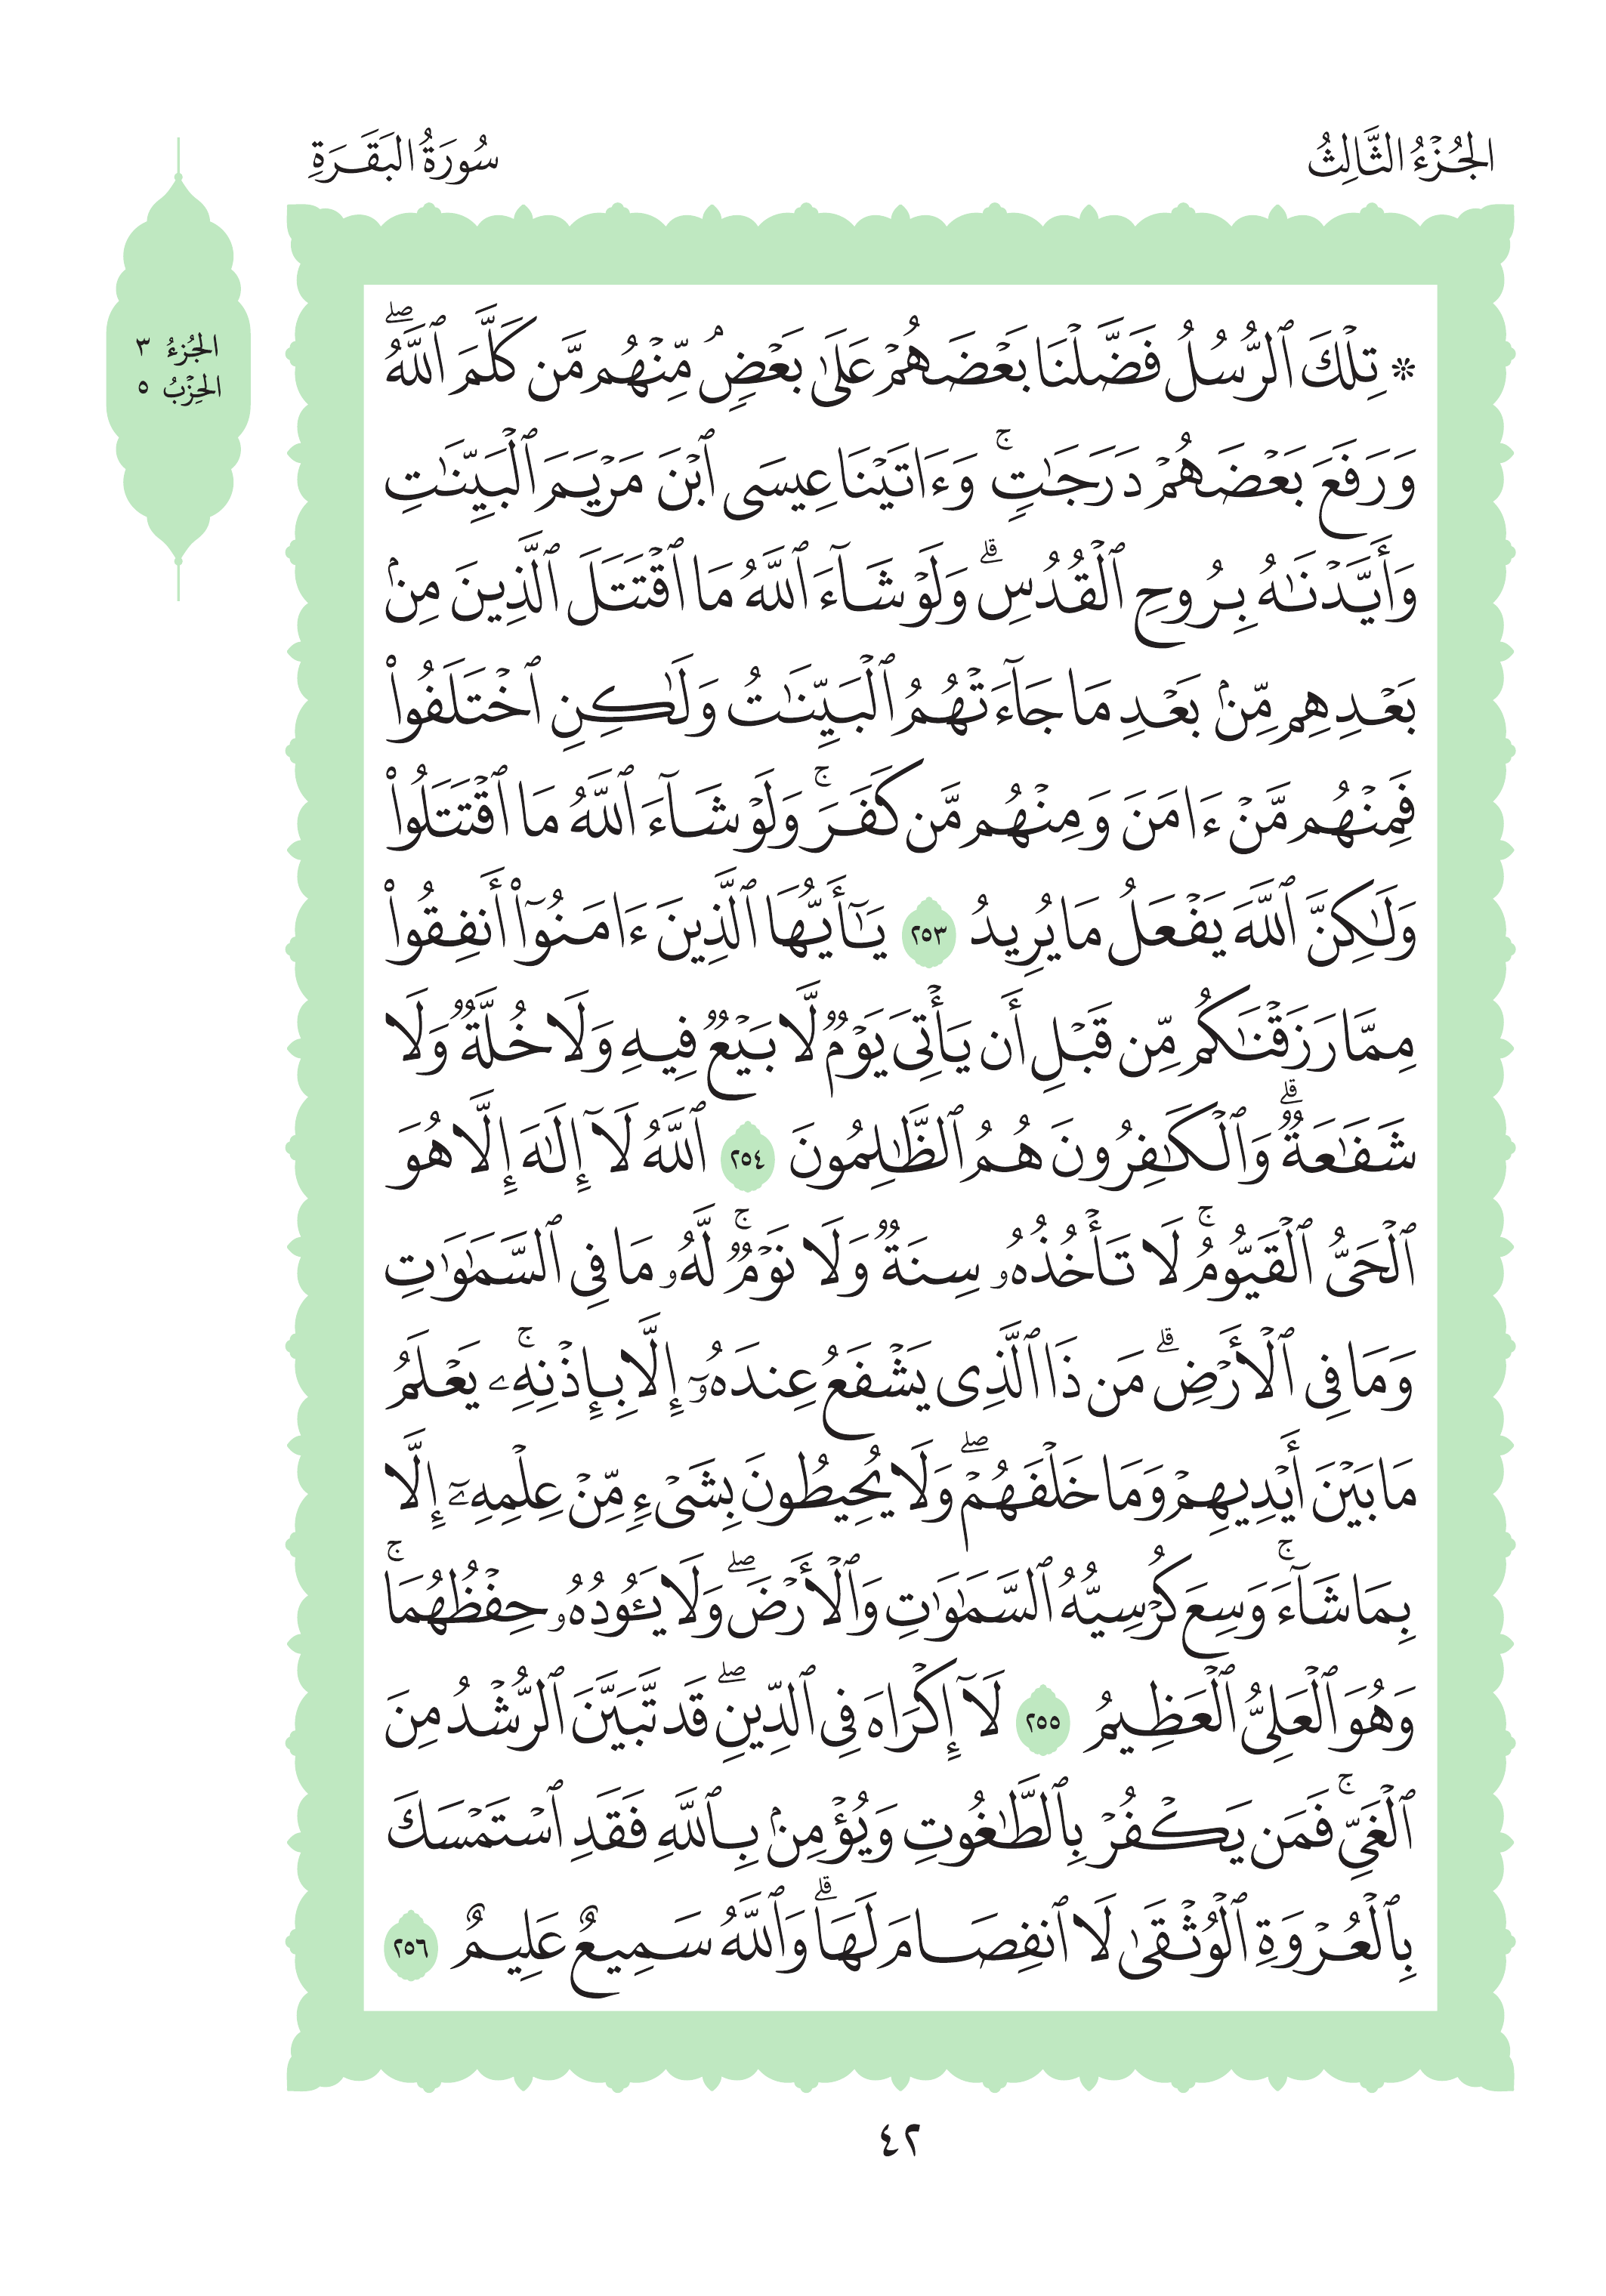 الجُزْءُ الثَّالِثُ
سُورَةُ البَقَرَةِ
الجُزءُ ٣
الحِزْبُ ٥
۞ تِلۡكَ ٱلرُّسُلُ فَضَّلۡنَا بَعۡضَهُمۡ عَلَىٰ بَعۡضٖۘ مِّنۡهُم مَّن كَلَّمَ ٱللَّهُۖ
وَرَفَعَ بَعۡضَهُمۡ دَرَجَٰتٖۚ وَءَاتَيۡنَا عِيسَى ٱبۡنَ مَرۡيَمَ ٱلۡبَيِّنَٰتِ
وَأَيَّدۡنَٰهُ بِرُوحِ ٱلۡقُدُسِۗ وَلَوۡ شَآءَ ٱللَّهُ مَا ٱقۡتَتَلَ ٱلَّذِينَ مِنۢ
بَعۡدِهِم مِّنۢ بَعۡدِ مَا جَآءَتۡهُمُ ٱلۡبَيِّنَٰتُ وَلَٰكِنِ ٱخۡتَلَفُواْ
فَمِنۡهُم مَّنۡ ءَامَنَ وَمِنۡهُم مَّن كَفَرَۚ وَلَوۡ شَآءَ ٱللَّهُ مَا ٱقۡتَتَلُواْ
وَلَٰكِنَّ ٱللَّهَ يَفۡعَلُ مَا يُرِيدُ ٢٥٣ يَٰٓأَيُّهَا ٱلَّذِينَ ءَامَنُوٓاْ أَنفِقُواْ
مِمَّا رَزَقۡنَٰكُم مِّن قَبۡلِ أَن يَأۡتِيَ يَوۡمٞ لَّا بَيۡعٞ فِيهِ وَلَا خُلَّةٞ وَلَا
شَفَٰعَةٞۗ وَٱلۡكَٰفِرُونَ هُمُ ٱلظَّٰلِمُونَ ٢٥٤ ٱللَّهُ لَآ إِلَٰهَ إِلَّا هُوَ
ٱلۡحَيُّ ٱلۡقَيُّومُۚ لَا تَأۡخُذُهُۥ سِنَةٞ وَلَا نَوۡمٞۚ لَّهُۥ مَا فِي ٱلسَّمَٰوَٰتِ
وَمَا فِي ٱلۡأَرۡضِۗ مَن ذَا ٱلَّذِي يَشۡفَعُ عِندَهُۥٓ إِلَّا بِإِذۡنِهِۦۚ يَعۡلَمُ
مَا بَيۡنَ أَيۡدِيهِمۡ وَمَا خَلۡفَهُمۡۖ وَلَا يُحِيطُونَ بِشَيۡءٖ مِّنۡ عِلۡمِهِۦٓ إِلَّا
بِمَا شَآءَۚ وَسِعَ كُرۡسِيُّهُ ٱلسَّمَٰوَٰتِ وَٱلۡأَرۡضَۖ وَلَا يَـُٔودُهُۥ حِفۡظُهُمَاۚ
وَهُوَ ٱلۡعَلِيُّ ٱلۡعَظِيمُ ٢٥٥ لَآ إِكۡرَاهَ فِي ٱلدِّينِۖ قَد تَّبَيَّنَ ٱلرُّشۡدُ مِنَ
ٱلۡغَيِّۚ فَمَن يَكۡفُرۡ بِٱلطَّٰغُوتِ وَيُؤۡمِنۢ بِٱللَّهِ فَقَدِ ٱسۡتَمۡسَكَ
بِٱلۡعُرۡوَةِ ٱلۡوُثۡقَىٰ لَا ٱنفِصَامَ لَهَاۗ وَٱللَّهُ سَمِيعٌ عَلِيمٌ ٢٥٦
٤٢